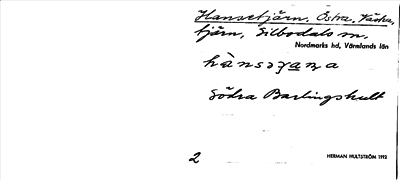 Hansetjärn, Östra, Västra,
tjärn, Silbodals sn.
Nordmarks hd, Värmlands län
Södra Barlingshult
2
HERMAN HULTSTRÖM 1912